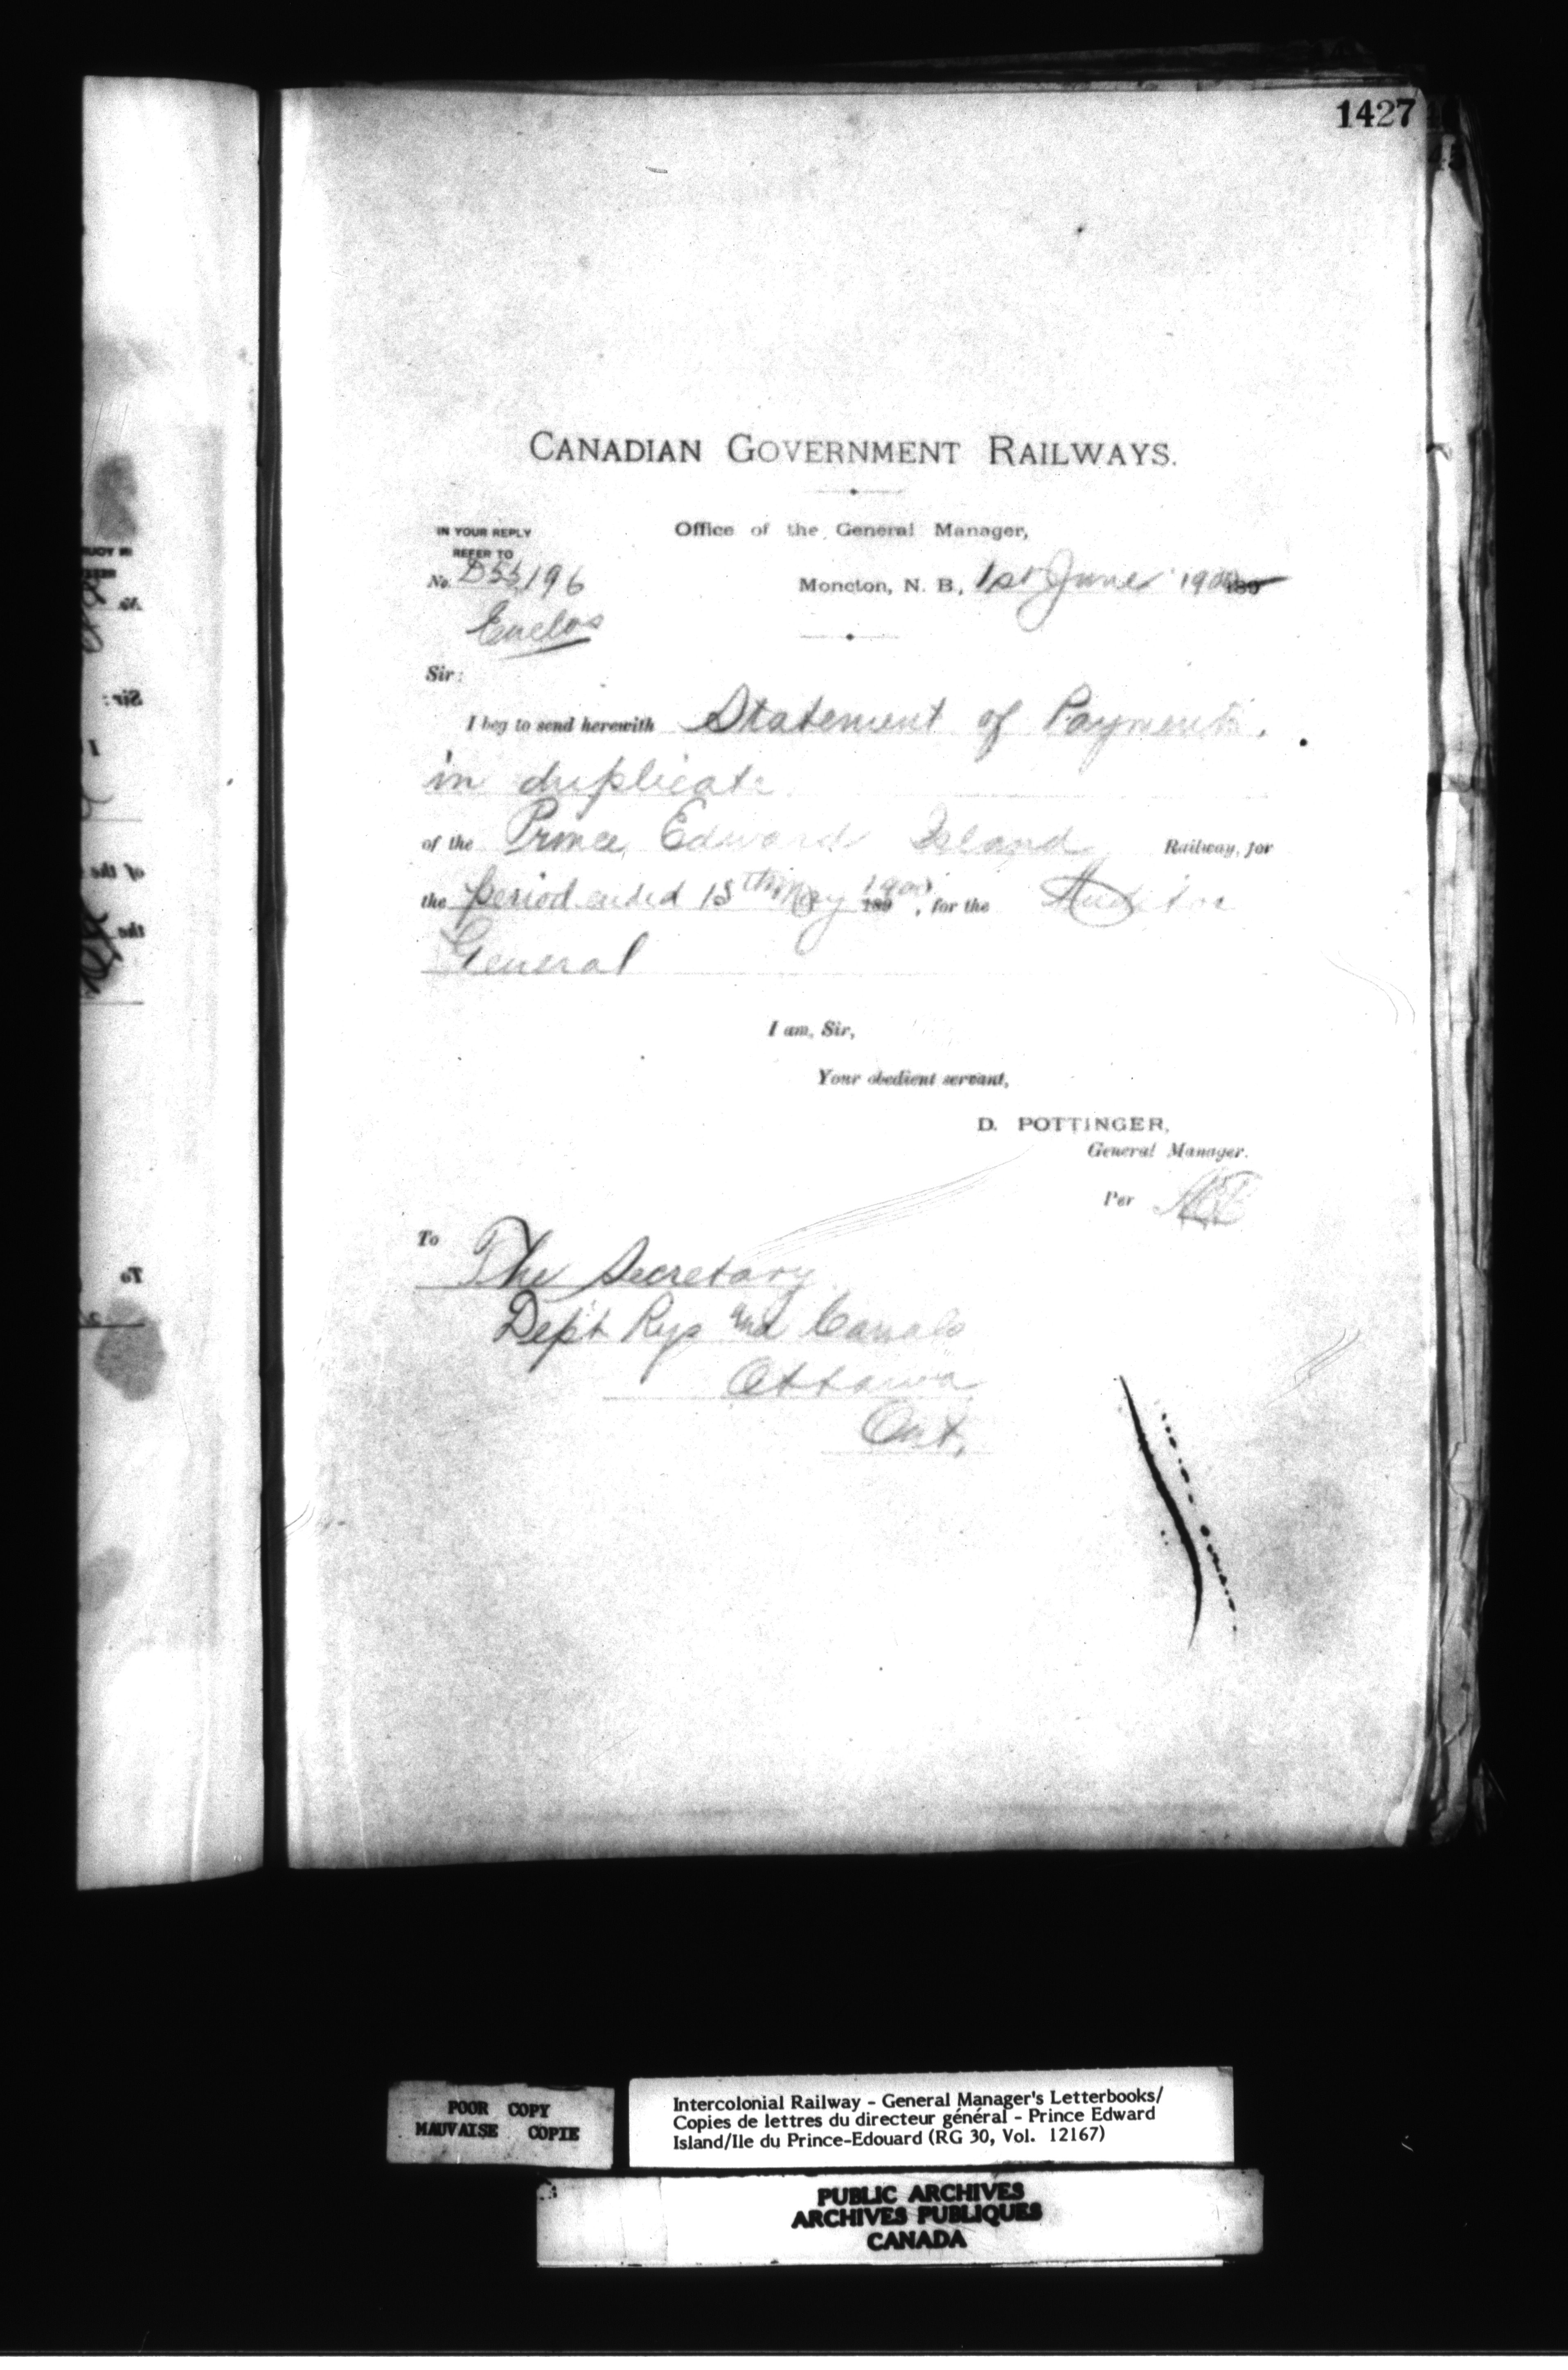 1427
CANADIAN GOVERNMENT RAILWAYS.
IN YOUR REPLY
REFER TO
Office of the General Manager,
No. D55196
Moncton, N. B., 1st June 1900
Enclos
Sir:
I beg to send herewith Statement of Payments,
in duplicate
of the Prince Edward Island Railway, for
the period ended 15th May 1900 189 , for the Auditor
General
I am, Sir,
Your obedient servant,
D. POTTINGER,
General Manager.
Per
To The Secretary
Dept Rys and Canals
Ottawa
Ont.
POOR COPY
MAUVAISE COPIE
Intercolonial Railway - General Manager's Letterbooks/
Copies de lettres du directeur général - Prince Edward
Island/Ile du Prince-Edouard (RG 30, Vol. 12167)
PUBLIC ARCHIVES
ARCHIVES PUBLIQUES
CANADA